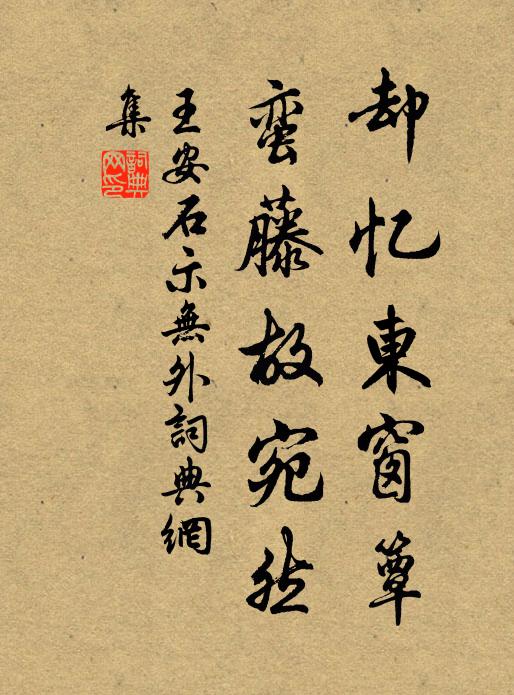 却忆東窗簟
蛮藤故宛然
王安石示無外詞典網
集
詞典网印